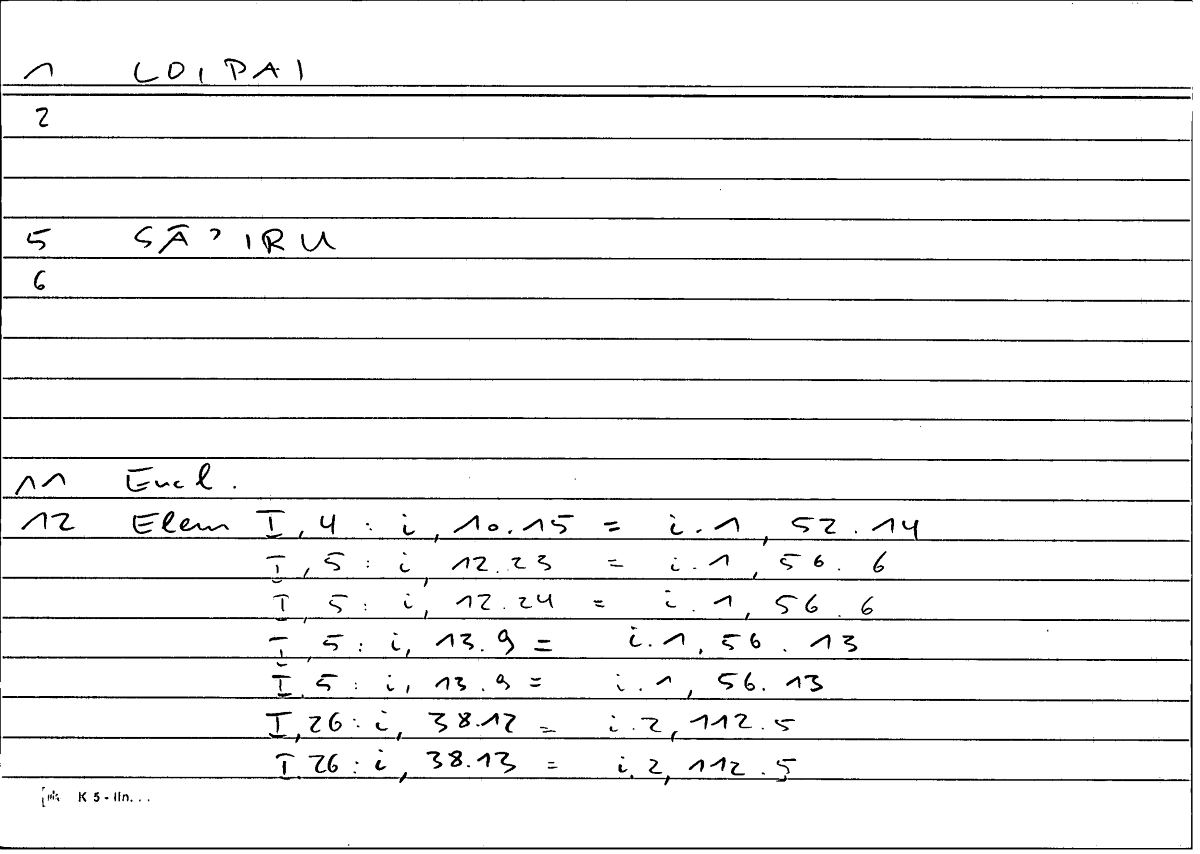 1 LOIPAI
2
5 SĀʾIRU
6
11 Eucl.
12 Elem I, 4 : i, 10.15 = i.1, 52.14
I, 5 : i, 12.23 = i.1, 56.6
I 5 : i, 12.24 = i.1, 56.6
I, 5 : i, 13.9 = i.1, 56.13
I, 5 : i, 13.9 = i.1, 56.13
I, 26 : i, 38.12 = i.2, 112.5
I 26 : i, 38.13 = i.2, 112.5
K 5 - lin...